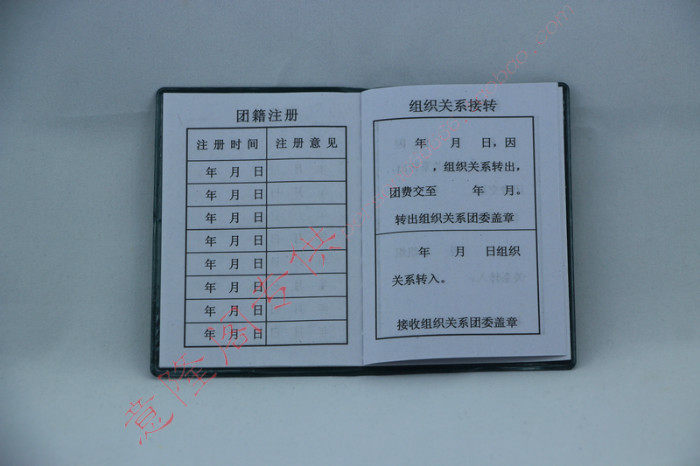 团籍注册
注册时间 注册意见
年 月 日
年 月 日
年 月 日
年 月 日
年 月 日
年 月 日
年 月 日
年 月 日
组织关系接转
年 月 日,因
,组织关系转出,
团费交至 年 月。
转出组织关系团委盖章
年 月 日组织
关系转入。
接收组织关系团委盖章
意隆阁专供